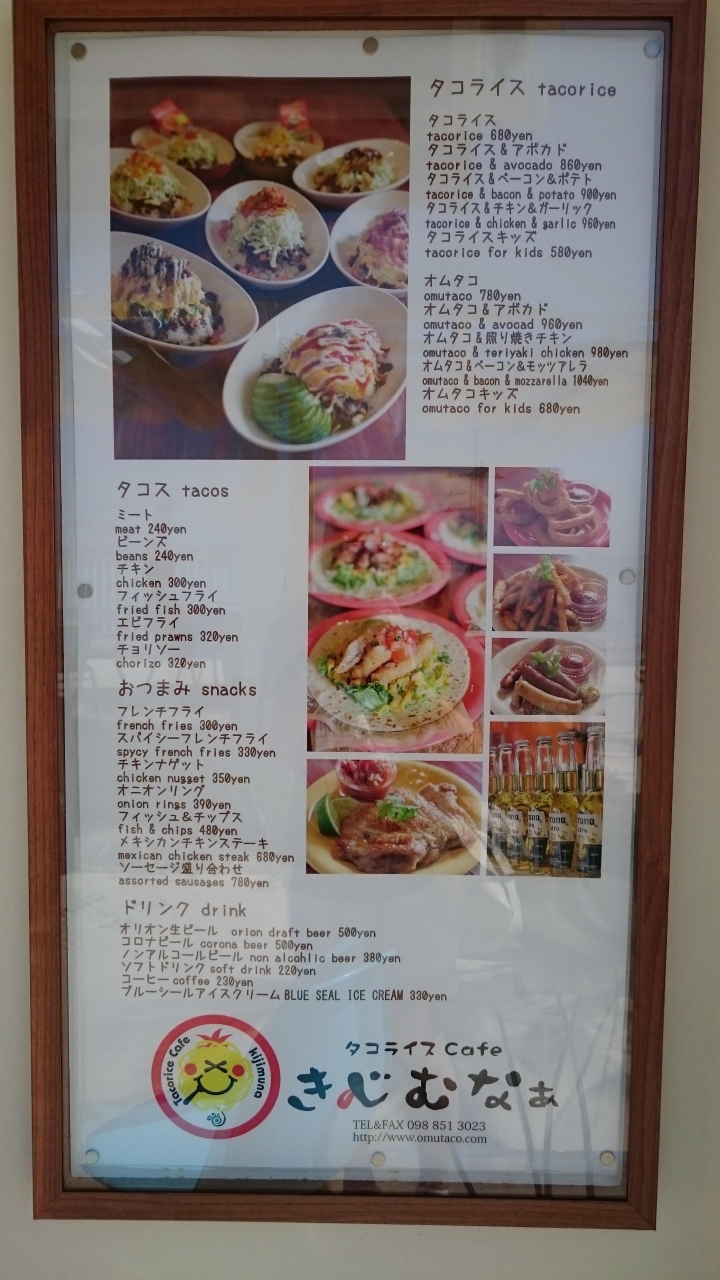 タコライス tacorice
タコライス
tacorice 680yen
タコライス&アボカド
tacorice & avocado 860yen
タコライス&ベーコン&ポテト
tacorice & bacon & potato 900yen
タコライス&チキン&ガーリック
tacorice & chicken & garlic 960yen
タコライスキッズ
tacorice for kids 580yen
オムタコ
omutaco 780yen
オムタコ&アボカド
omutaco & avocad 960yen
オムタコ&照り焼きチキン
omutaco & teriyaki chicken 980yen
オムタコ&ベーコン&モッツアレラ
omutaco & bacon & mozzarella 1040yen
オムタコキッズ
omutaco for kids 680yen
タコス tacos
ミート
meat 240yen
ビーンズ
beans 240yen
チキン
chicken 300yen
フィッシュフライ
fried fish 300yen
エビフライ
fried prawns 320yen
チョリソー
chorizo 320yen
おつまみ snacks
フレンチフライ
french fries 300yen
スパイシーフレンチフライ
spycy french fries 330yen
チキンナゲット
chicken nugget 350yen
オニオンリング
onion rings 390yen
フィッシュ&チップス
fish & chips 480yen
メキシカンチキンステーキ
mexican chicken steak 680yen
ソーセージ盛り合わせ
assorted sausages 780yen
ドリンク drink
オリオン生ビール orion draft beer 500yen
コロナビール corona beer 500yen
ノンアルコールビール non alcohlic beer 380yen
ソフトドリンク soft drink 220yen
コーヒー coffee 230yen
ブルーシールアイスクリーム BLUE SEAL ICE CREAM 330yen
Tacorice Cafe kijimuna
タコライス Cafe
きじむなぁ
TEL&FAX 098 851 3023
http://www.omutaco.com